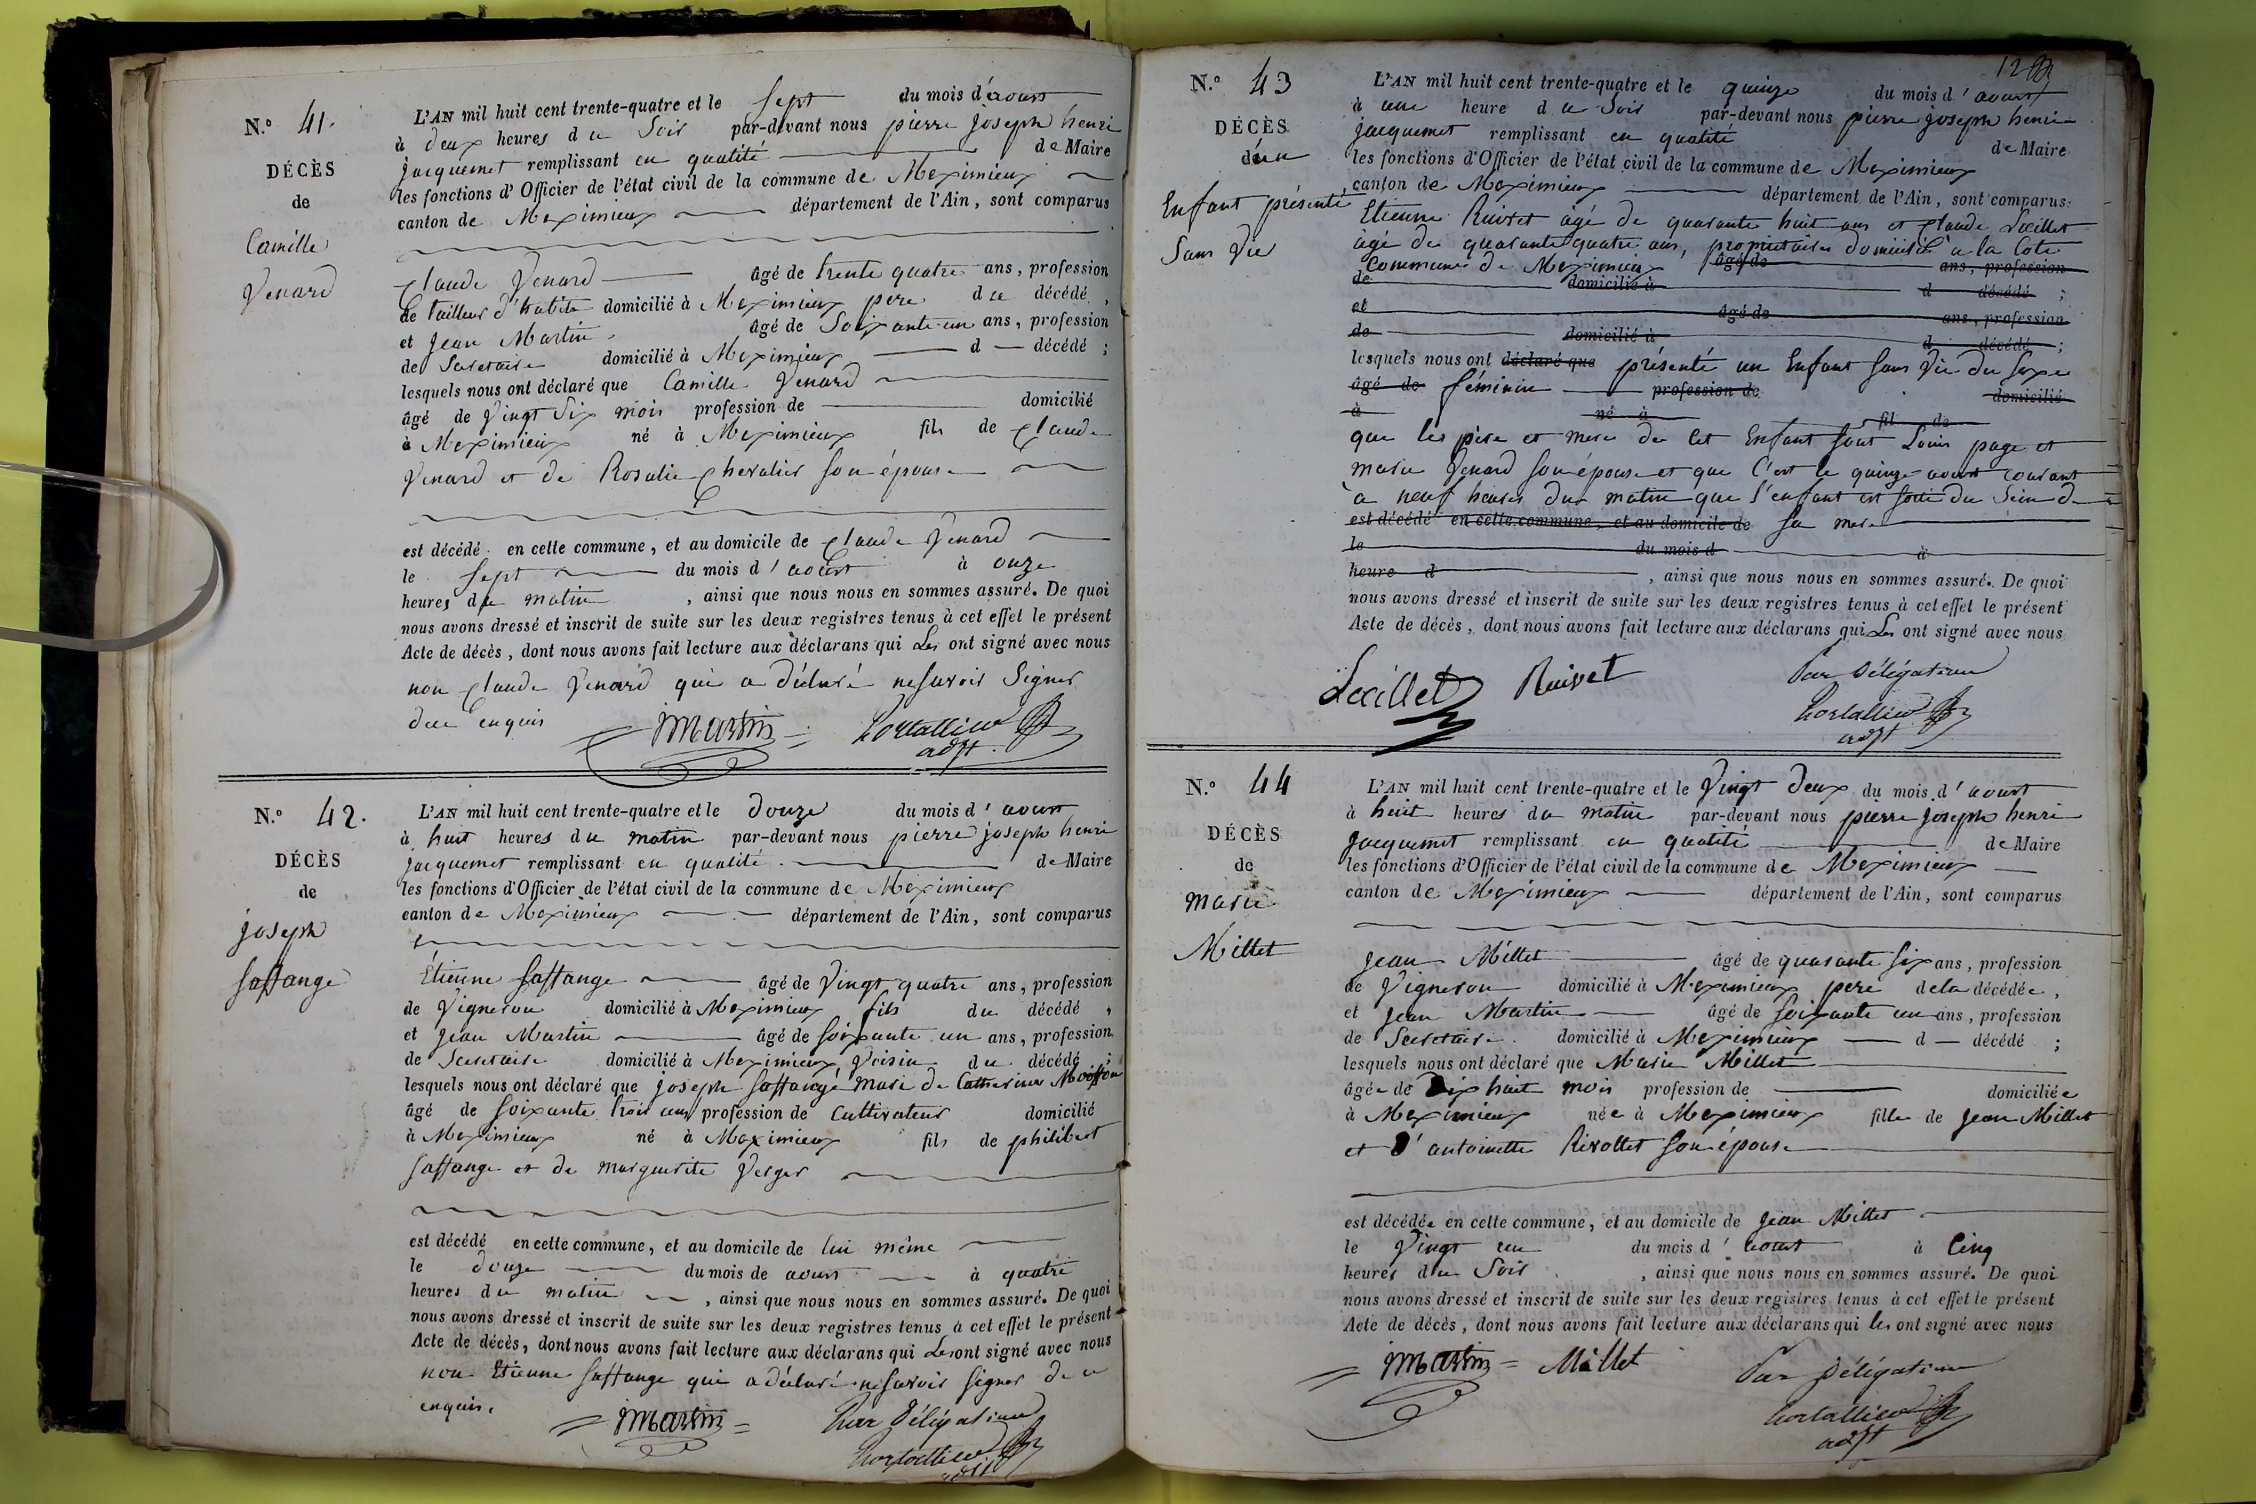 N.º 41.
DÉCÈS
de
Camille
Venard
L'AN mil huit cent trente-quatre et le Sept du mois d'aoust
à deux heures du Soir par-devant nous pierre joseph henri
jacquemet remplissant en qualité de Maire
les fonctions d'Officier de l'état civil de la commune de Meximieux
canton de Meximieux département de l'Ain, sont comparus
Claude Venard âgé de trente quatre ans, profession
de tailleur d'habits domicilié à Meximieux pere du décédé,
et Jean Martin âgé de Soixante un ans, profession
de Secretaire domicilié à Meximieux d décédé ;
lesquels nous ont déclaré que Camille Venard
âgé de Vingt Six mois profession de domicilié
à Meximieux né à Meximieux fils de Claude
Venard et de Rosalie Chevalier son épouse
est décédé en cette commune, et au domicile de Claude Venard
le Sept du mois d'aoust à onze
heures du matin, ainsi que nous nous en sommes assuré. De quoi
nous avons dressé et inscrit de suite sur les deux registres tenus à cet effet le présent
Acte de décès, dont nous avons fait lecture aux déclarans qui Les ont signé avec nous
non Claude Venard qui a déclaré ne savoir Signer
due enquis
Martin adjt
N.º 42.
DÉCÈS
de
joseph
Saffange
L'AN mil huit cent trente-quatre et le douze du mois d'aoust
à huit heures du matin par-devant nous pierre joseph henri
jacquemet remplissant en qualité de Maire
les fonctions d'Officier de l'état civil de la commune de Meximieux
canton de Meximieux département de l'Ain, sont comparus
Étienne Saffange âgé de Vingt quatre ans, profession
de Vigneron domicilié à Meximieux fils du décédé,
et Jean Martin âgé de soixante un ans, profession
de Secretaire domicilié à Meximieux Voisin du décédé ;
lesquels nous ont déclaré que joseph Saffange mari de Catherine
âgé de soixante trois ans profession de Cultivateur domicilié
à Meximieux né à Meximieux fils de philibert
Saffange et de marguerite Verger
est décédé en cette commune, et au domicile de lui même
le douze du mois de aoust à quatre
heures du matin, ainsi que nous nous en sommes assuré. De quoi
nous avons dressé et inscrit de suite sur les deux registres tenus à cet effet le présent
Acte de décès, dont nous avons fait lecture aux déclarans qui Les ont signé avec nous
non Etienne Saffange qui a déclaré ne savoir signer de ce
enquis.
Martin Par Délégation
N.º 43
DÉCÈS
d'un
Enfant présenté
Sans Vie
L'AN mil huit cent trente-quatre et le quinze du mois d'aoust
à une heure du Soir par-devant nous pierre joseph henri
jacquemet remplissant en qualité de Maire
les fonctions d'Officier de l'état civil de la commune de Meximieux
canton de Meximieux département de l'Ain, sont comparus
Etienne Ruivet agé de quarante huit ans et Claude Lœillet
agé de quarante quatre ans, proprietaires domiciliés a la Cote
Commune de Meximieux âgé de ans, profession
de domicilié à d décédé ;
et âgé de ans, profession
de domicilié à d décédé ;
lesquels nous ont déclaré que présenté un Enfant Sans Vie du Sexe
âgé de féminin profession de domicilié
à né à fil de
que les père et mere de Cet Enfant Sont Louis page et
marie Venard son épouse et que C'est le quinze aoust courant
a neuf heures du matin que l'enfant est sorti du Sein de
est décédé en cette commune, et au domicile de sa mere
le du mois d à
heure d, ainsi que nous nous en sommes assuré. De quoi
nous avons dressé et inscrit de suite sur les deux registres tenus à cet effet le présent
Acte de décès, dont nous avons fait lecture aux déclarans qui Les ont signé avec nous
Lœillet Ruivet Par Délégation
adjt
N.º 44
DÉCÈS
de
marie
Millet
L'AN mil huit cent trente-quatre et le Vingt deux du mois d'aoust
à huit heures du matin par-devant nous pierre joseph henri
jacquemet remplissant en qualité de Maire
les fonctions d'Officier de l'état civil de la commune de Meximieux
canton de Meximieux département de l'Ain, sont comparus
Jean Millet âgé de quarante six ans, profession
de Vigneron domicilié à Meximieux pere de la décédée,
et Jean Martin âgé de soixante un ans, profession
de Secretaire domicilié à Meximieux d décédé ;
lesquels nous ont déclaré que Marie Millet
âgée de Dix huit mois profession de domiciliée
à Meximieux née à Meximieux fille de Jean Millet
et D'antoinette Rivollet son épouse
est décédée en cette commune, et au domicile de Jean Millet
le Vingt un du mois d'aoust à Cinq
heures du Soir, ainsi que nous nous en sommes assuré. De quoi
nous avons dressé et inscrit de suite sur les deux registres tenus à cet effet le présent
Acte de décès, dont nous avons fait lecture aux déclarans qui les ont signé avec nous
Martin Millet Par Délégation
adjt